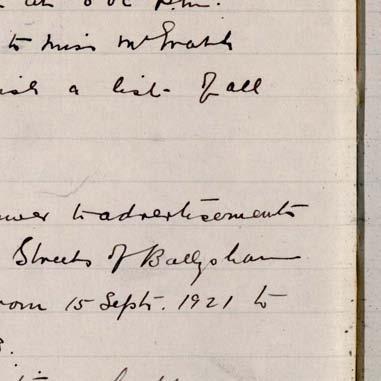 to Miss McGrath
a list of all
to advertisements
Streets of Ballyshan
from 15 Septr. 1921 to